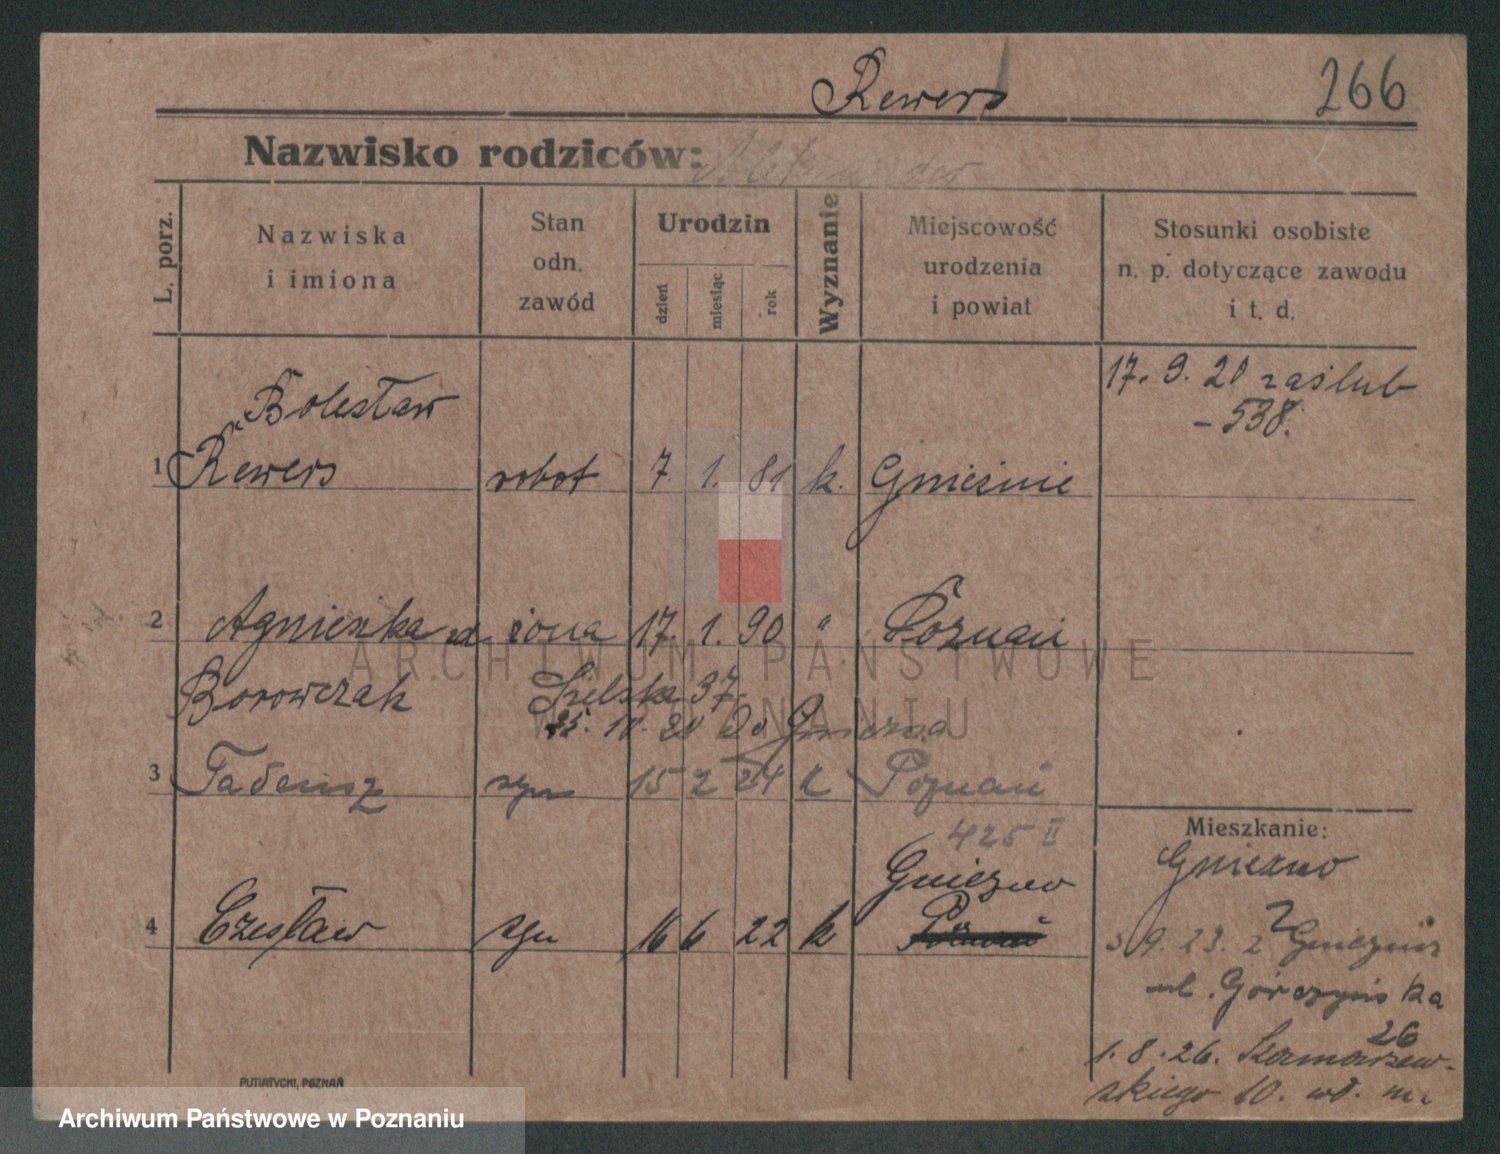 Rewers 266
Nazwisko rodziców:
L. porz.
Nazwiska
i imiona
Stan
odn.
zawód
Urodzin
dzień miesiąc rok
Wyznanie
Miejscowość
urodzenia
i powiat
Stosunki osobiste
n. p. dotyczące zawodu
i t. d.
17. 9. 20 zaślub
- 538.
Bolesław
1 Rewers robot 7. 1. 81 k. Gnieźnie
2 Agnieszka żona 17. 1. 90 " Poznań
Borowczak Sielska 37
25. 10. 20 do Gniezna
3 Tadeusz syn 15 2 24 k Poznań
425 II
Gniezno
4 Czesław syn 16 6 22 k
Mieszkanie:
Gniezno
5 9. 23. z Gniezna
ul. Górczyńska
26
1. 8. 26. Szamarzew-
skiego 10. wł. m.
PUTIATYCKI, POZNAŃ
ARCHIWUM PAŃSTWOWE
W POZNANIU
Archiwum Państwowe w Poznaniu